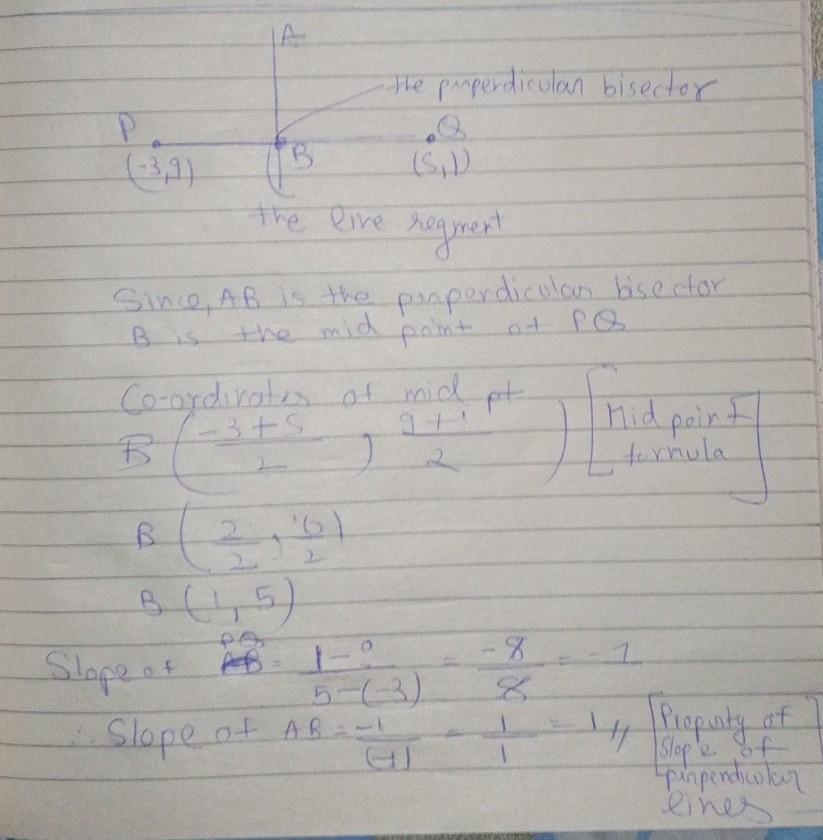 A
the purperdicular bisector
P
Q
B
(-3,9)
(5,1)
the line segment
Since, AB is the purperdicular bisector
B is the mid point of PQ
Co-ordinates of mid pt
B (-3+5/2, 9+1/2) [Mid point formula]
B (2/2, 10/2)
B (1, 5)
Slope of PQ = 1-9/5-(-3) = -8/8 = -1
∴ Slope of AB = -1/(-1) = 1/1 = 1 // [Property of
slope of
purpendicular
lines